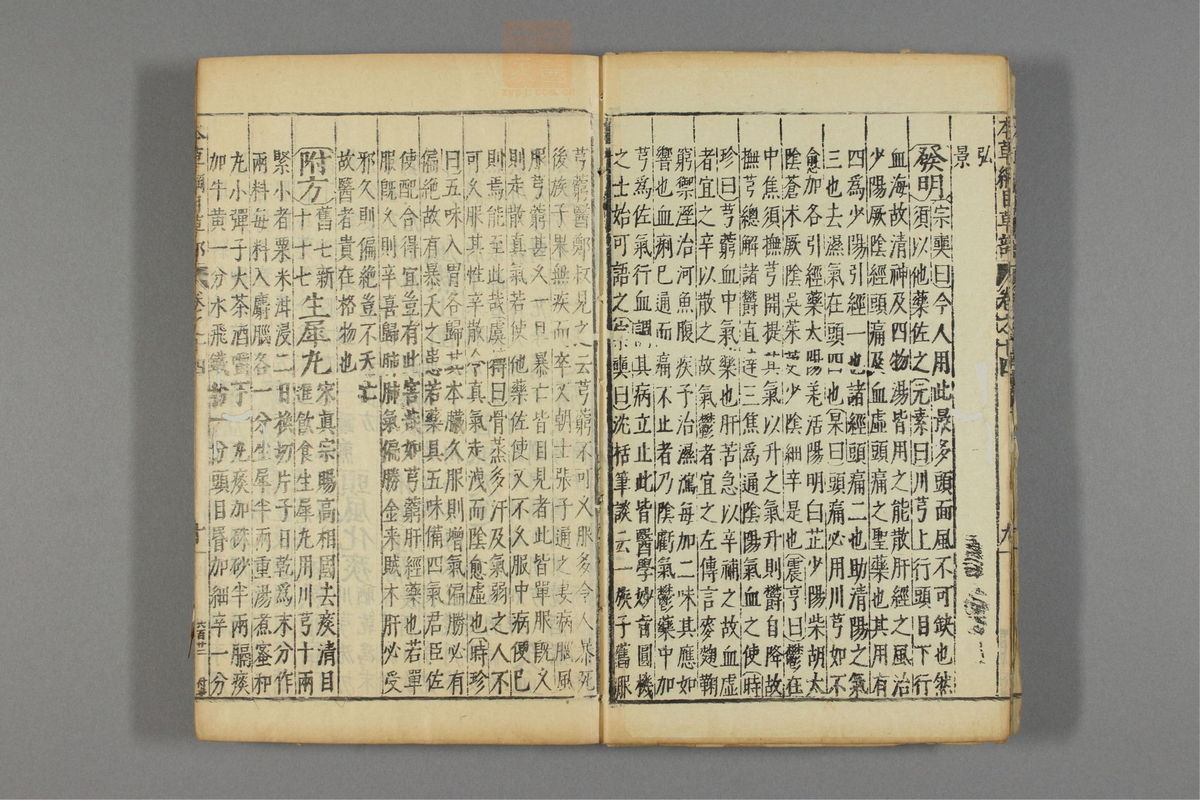 弘景
發明宗奭曰今人用此最多頭面風不可缺也然
須以他藥佐之元素曰川芎上行頭目下行
血海故清神及四物湯皆用之能散肝經之風治
少陽厥陰經頭痛及血虛頭痛之聖藥也其用有
四爲少陽引經一也諸經頭痛二也助清陽之氣
三也去濕氣在頭四也杲曰頭痛必用川芎如不
愈加各引經藥太陽羌活陽明白芷少陽柴胡太
陰蒼术厥陰吳茱萸少陰細辛是也震亨曰鬱在
中焦須撫芎開提其氣以升之氣升則鬱自降故
撫芎總解諸鬱直達三焦爲通陰陽氣血之使時
珍曰芎藭血中氣藥也肝苦急以辛補之故血虛
者宜之辛以散之故氣鬱者宜之左傳言麥麴鞠
窮禦溼治河魚腹疾予治濕瀉每加二味其應如
響也血痢已通而痛不止者乃陰虧氣鬱藥中加
芎爲佐氣行血調其病立止此皆醫學妙旨圓機
之士始可語之宗奭曰沈括筆談云一族子舊服
芎藭醫鄭叔見之云芎藭不可久服多令人暴死
後族子果無疾而卒又朝士張子通之妻病腦風
服芎藭甚久一旦暴亡皆目見者此皆單服既久
則走散真氣若使他藥佐使又不久服中病便已
則焉能至此哉虞摶曰骨蒸多汗及氣弱之人不
可久服其性辛散令真氣走洩而陰愈虛也時珍
曰五味入胃各歸其本臟久服則增氣偏勝必有
偏絕故有暴夭之患若藥具五味備四氣君臣佐
使配合得宜豈有此害哉如芎藭肝經藥也若單
服既久則辛喜歸肺肺氣偏勝金來賊木肝必受
邪久則偏絕豈不夭亡
故醫者貴在格物也
附方舊七新十七生犀丸宋真宗賜高相國去痰清目
進飲食生犀丸用川芎十兩
緊小者粟米泔浸二日換切片子日乾爲末分作
兩料每料入麝腦各一分生犀半兩重湯煮蜜和
丸小彈子大茶酒嚼下一丸痰加硃砂半兩膈痰
加牛黃一分水飛鐵粉一分頭目昏加細辛一分
六百廿二